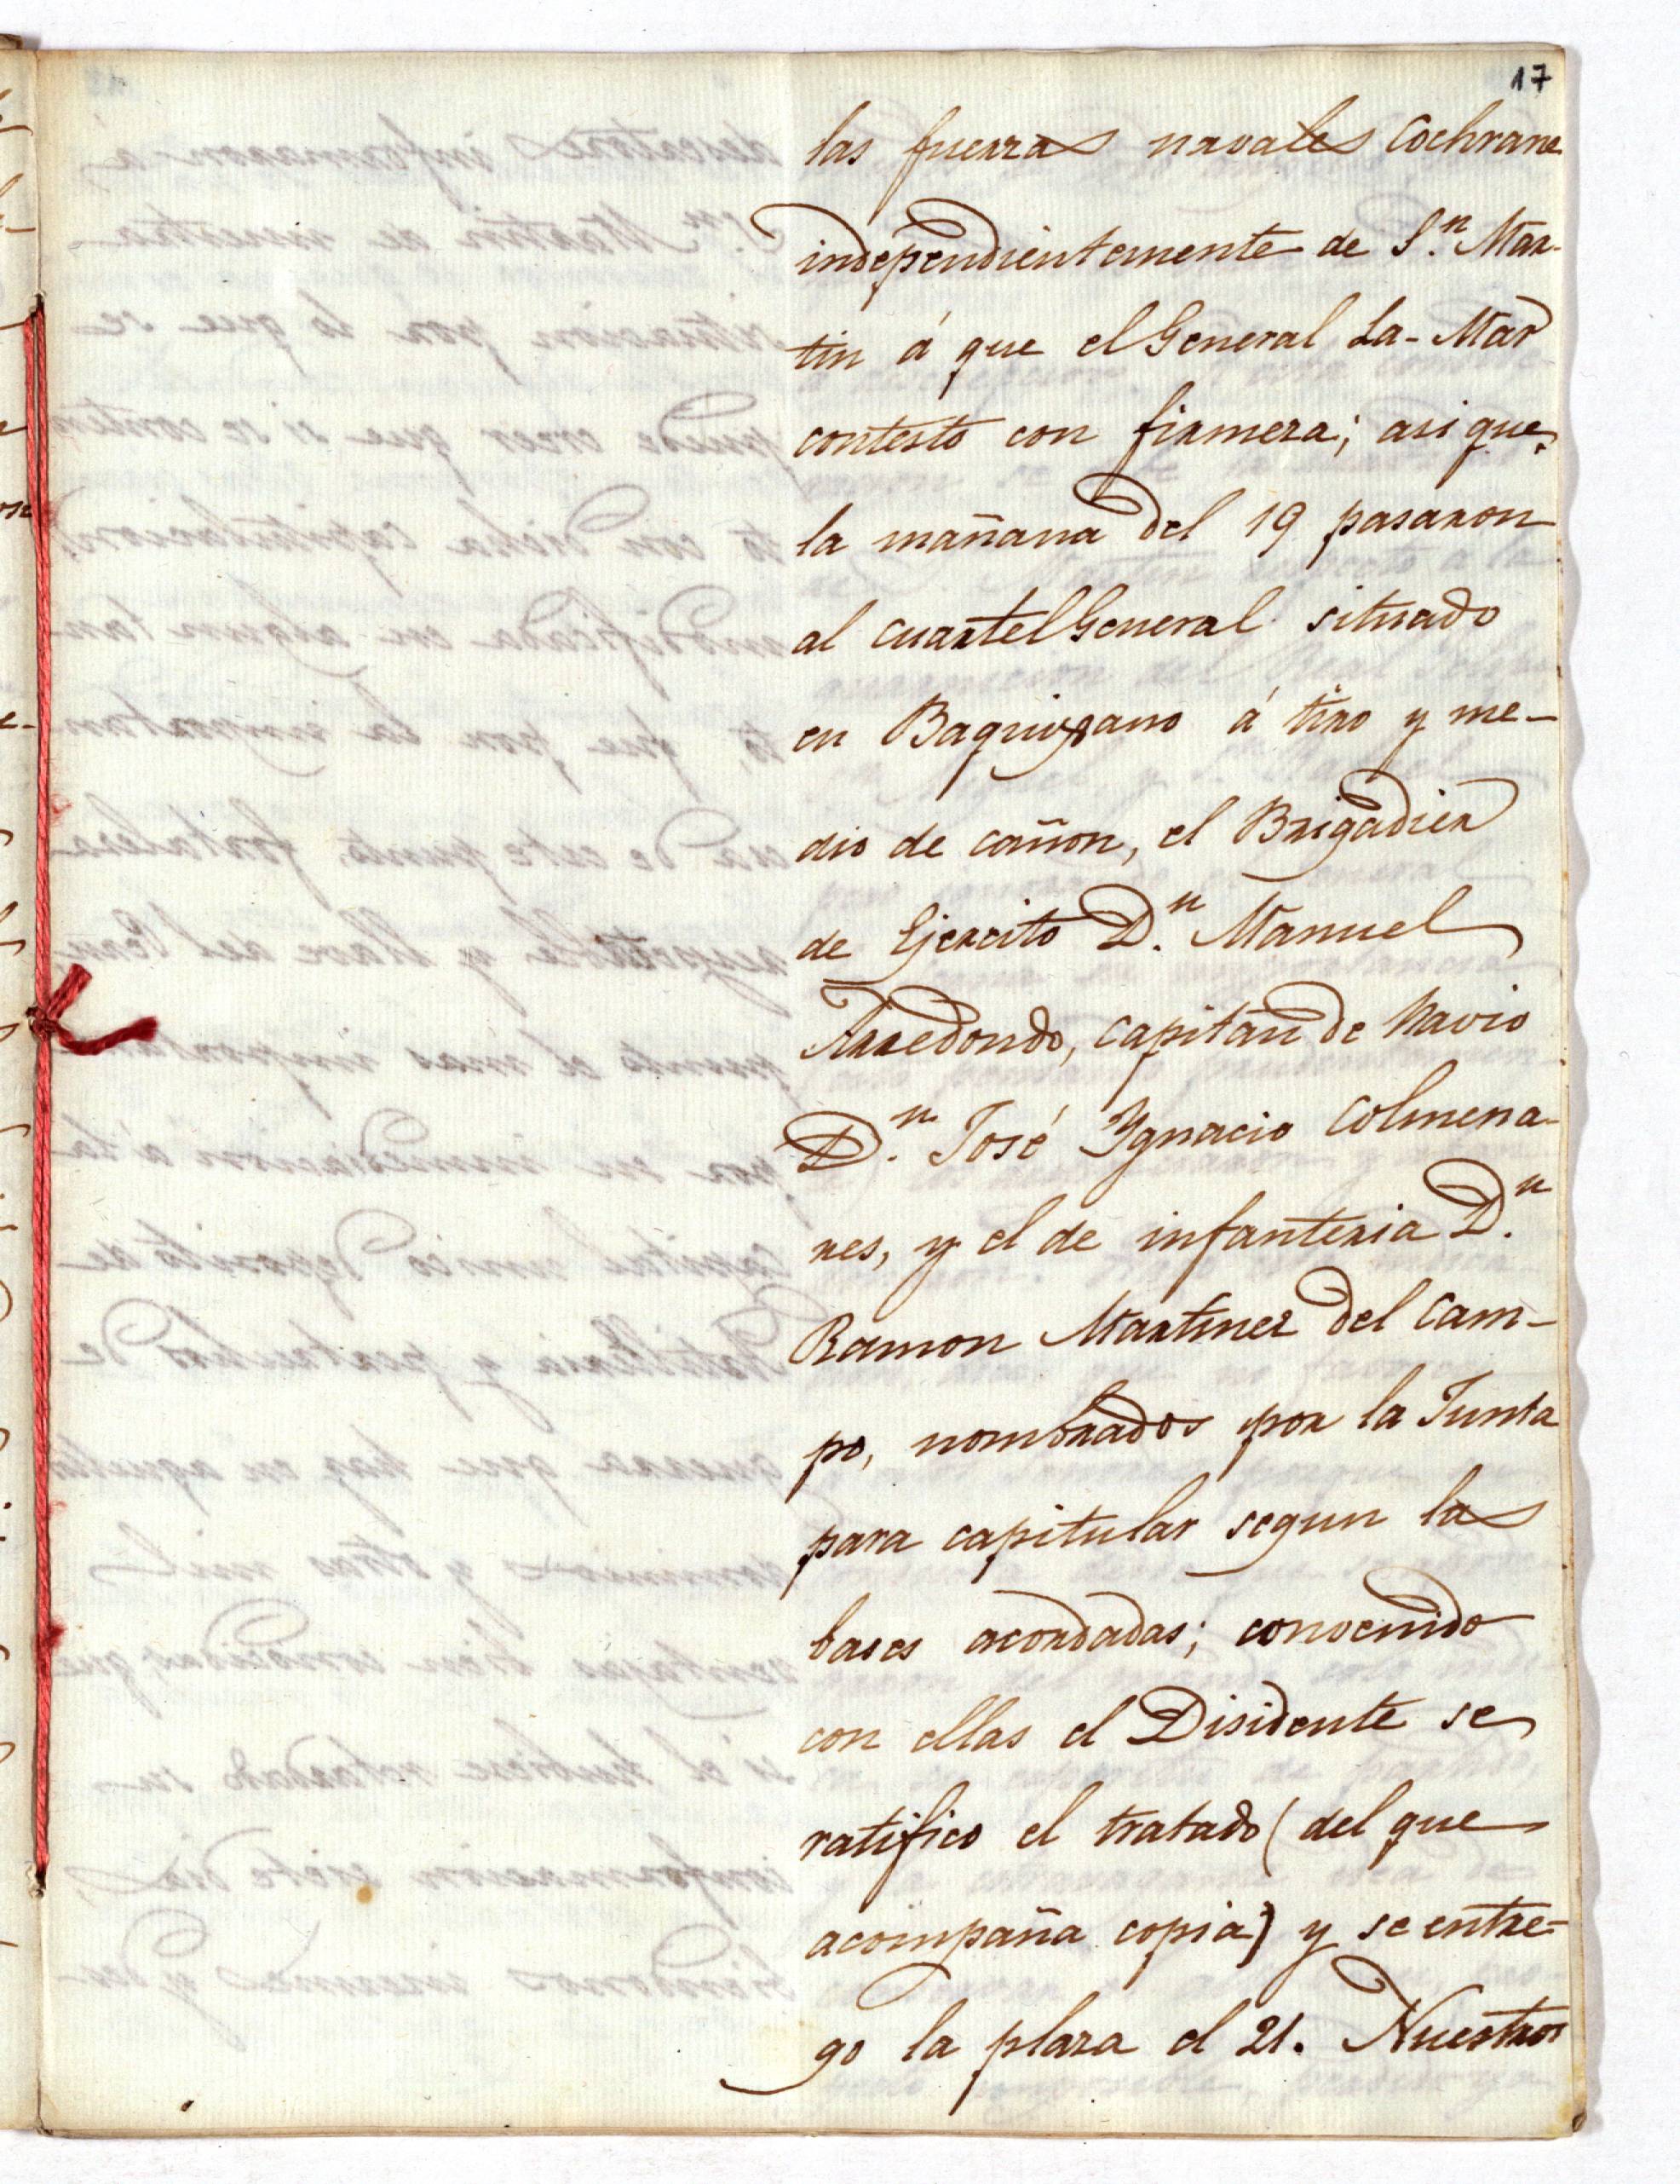 17
las fuerzas navales Cochrane
independientemente de S.n Mar-
tin á que el General La-Mar
contestó con firmeza; asi que,
la mañana del 19 pasaron
al cuartel General situado
en Baquijano á tiro y me-
dio de cañon, el Brigadier
de Ejercito D.n Manuel
Arredondo, Capitan de Navio
D.n José Ygnacio Colmena-
res, y el de infanteria D.n
Ramon Martinez del Cam-
po, nombrados por la Junta
para capitular segun las
bases acordadas; convenido
con ellas el Disidente se
ratifico el tratado (del que
acompaña copia) y se entre-
go la plaza el 21. Nuestros